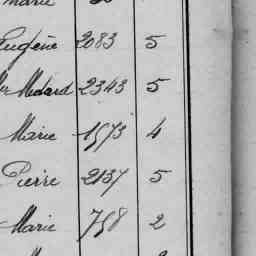 Marie
Eugène 2083 5
Médard 2343 5
Marie 1573 4
Pierre 2137 5
Marie 758 2